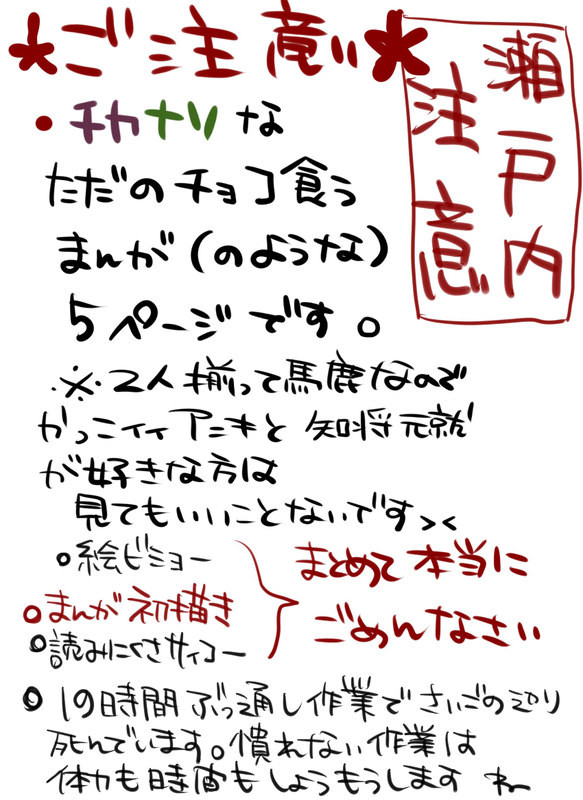 *ご注意*
瀬戸内
注意
・チカナリな
ただのチョコ食う
まんが(のような)
5ページです。
※2人揃って馬鹿なので
かっこイイアニキと知将元就
が好きな方は
見てもいいことないです><
○絵ビミョー
○まんが初描き
○読みにくさサイコー
まとめて本当に
ごめんなさい
○19時間ぶっ通し作業でさいごの
死んでいます。慣れない作業は
体力も時間もしょうもうします